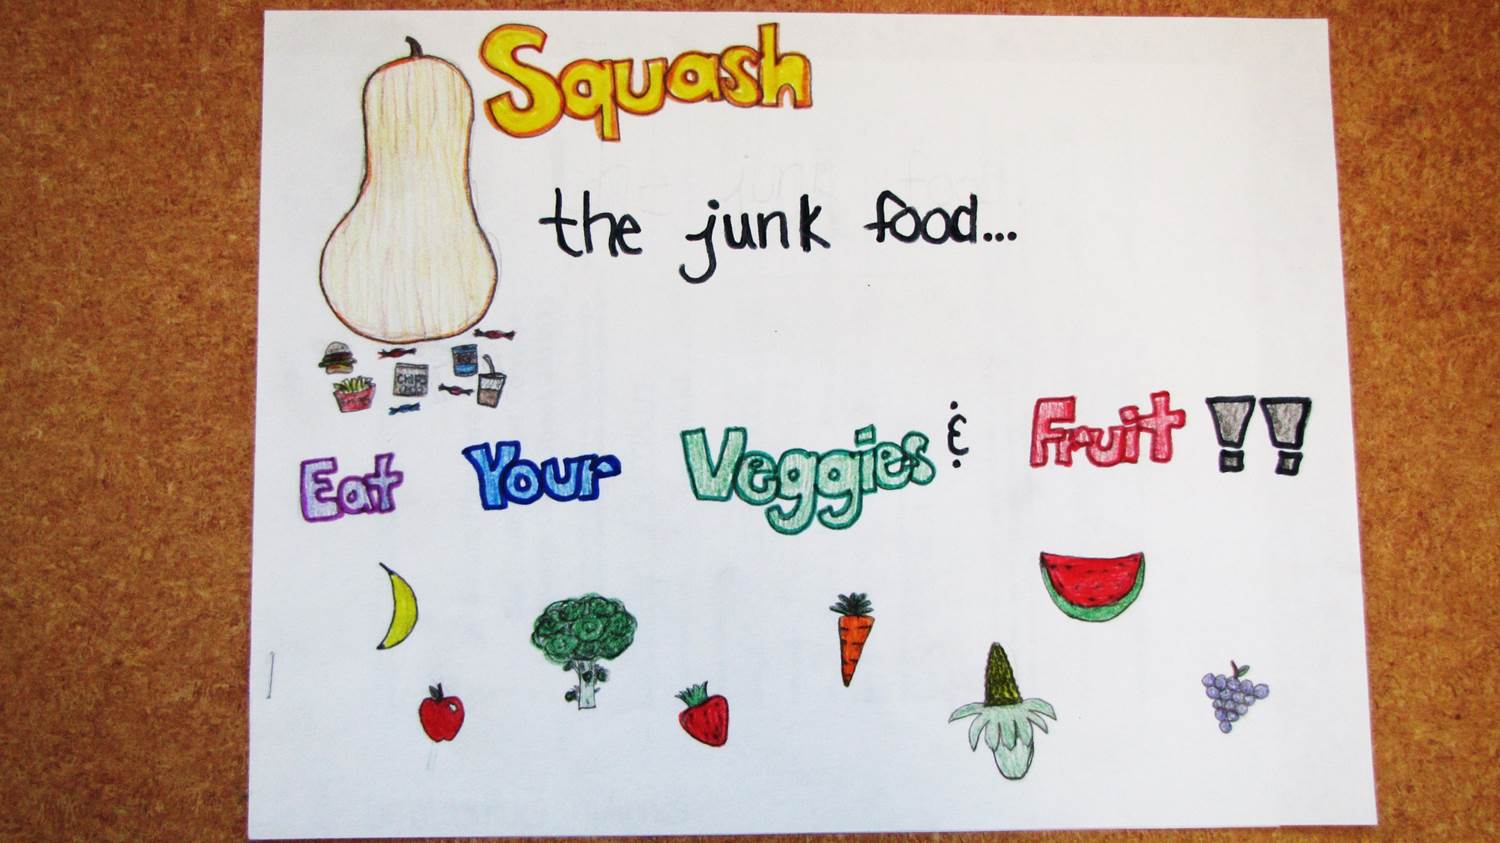 Squash
the junk food...
CHIPS
Eat Your Veggies & Fruit !!